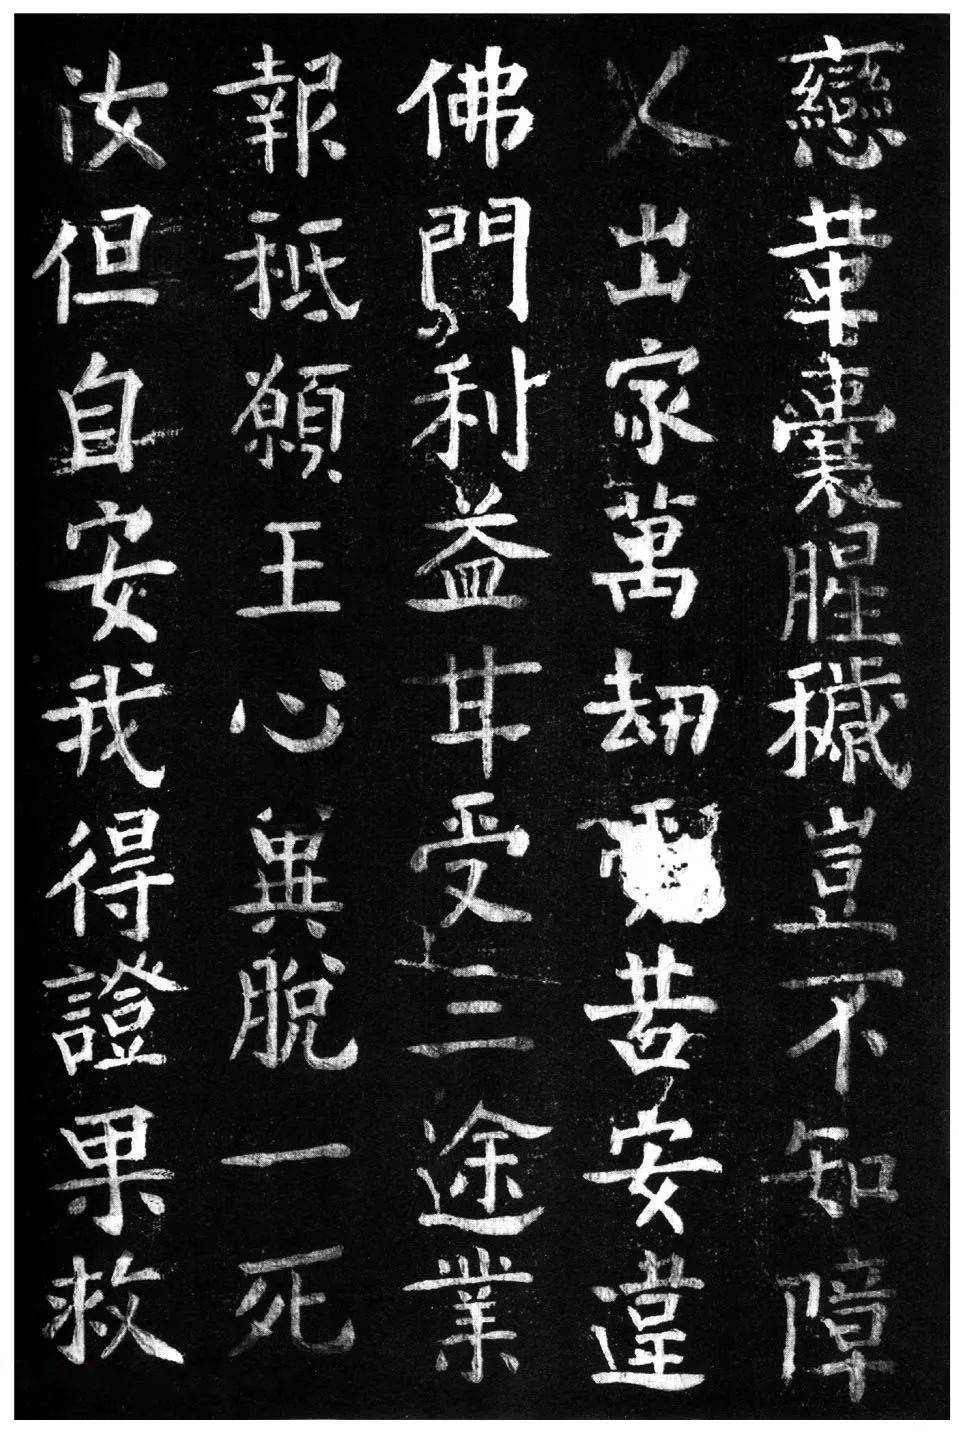 戀革囊腥穢豈不知障
人出家萬劫苦安違
佛門利益甘受三途業
報秪願王心冀脫一死
汝但自安我得證果救